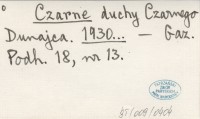 Czarne duchy Czarnego
Dunajca. 1930... — Gaz.
Podh. 18, nr 13.